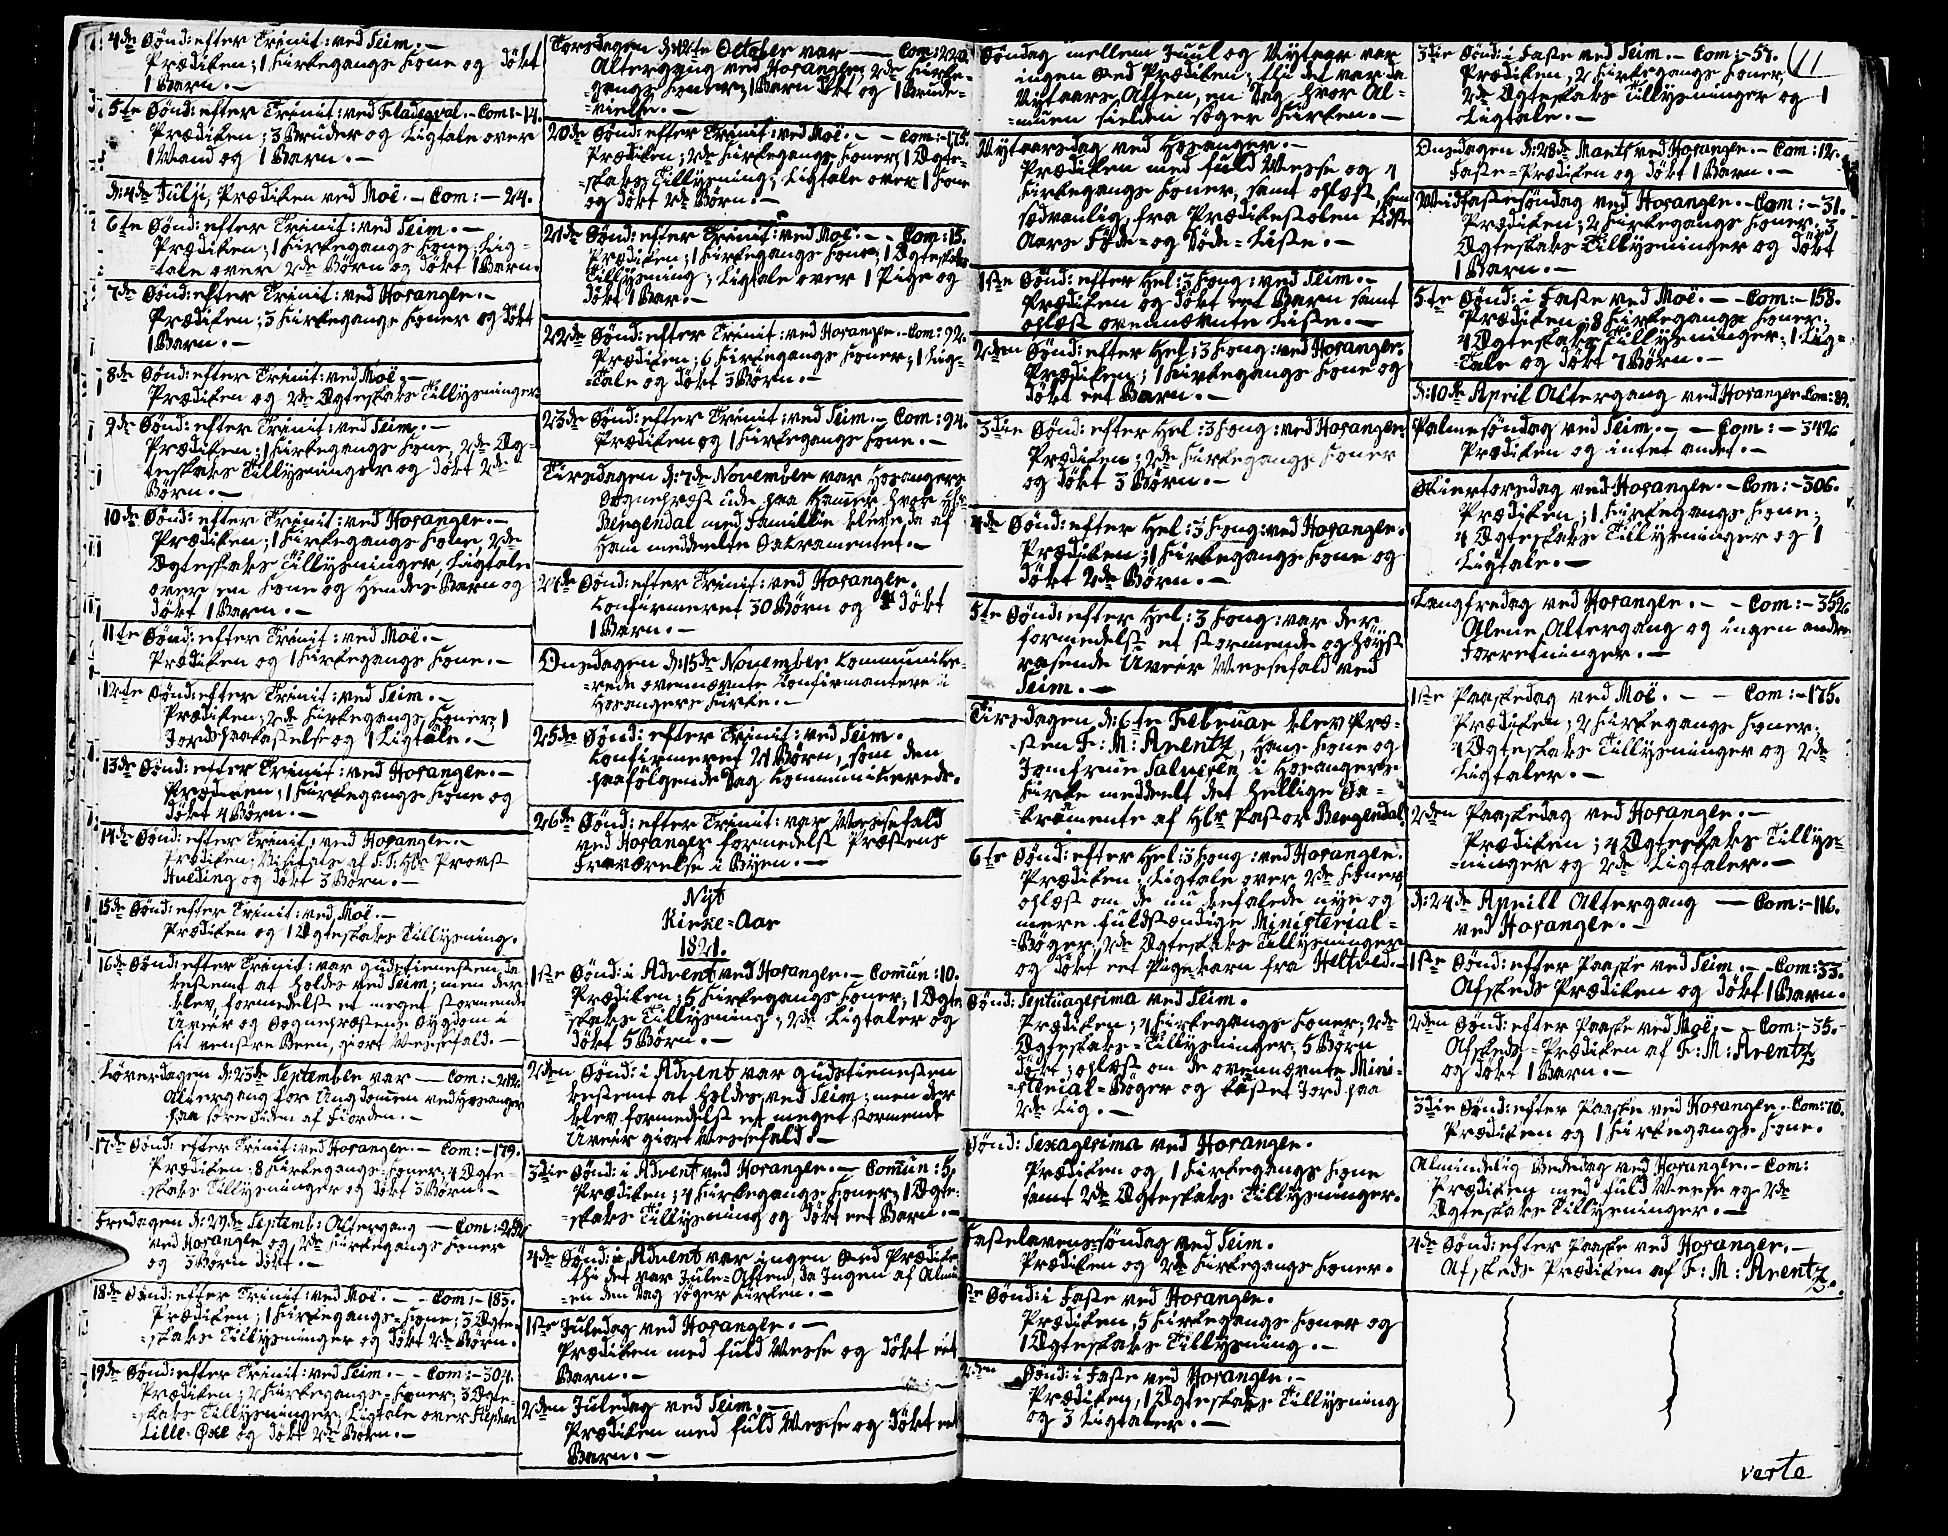 4de Sönd: efter Trinit: ved Seim. —
Prædiken; 1 Kirkegangs Kone og döbt
1 Barn. —
5te Sönd: efter Trinit: ved Com: - 14.
Prædiken; 3 Bruder og Ligtale over
1 Mand og 1 Barn. —
d: 4de Julji, Prædiken ved Moë. — Com: — 24.
6te Sönd: efter Trinit: ved Seim. —
Prædiken; 1 Kirkegangs Kone, Lig-
-tale over 2de Börn og döbt 1 Barn.
7de Sönd: efter Trinit: ved Hosanger. —
Prædiken; 3 Kirkegangs Koner og döbt
1 Barn. —
8de Sönd: efter Trinit: ved Moë. —
Prædiken og 2de Ægteskabs Tillysninger.
9de Sönd: efter Trinit: ved Seim. —
Prædiken; 1 Kirkegangs Kone, 2de Æg-
teskabs Tillysninger og döbt 2de
Börn. —
10de Sönd: efter Trinit: ved Hosanger. —
Prædiken; 1 Kirkegangs Kone, 2de
Ægteskabs Tillysninger, Ligtale
over en Kone og Hendes Barn og
döbt 1 Barn. —
11te Sönd: efter Trinit: ved Moë. —
Prædiken og 1 Kirkegangs Kone. —
12te Sönd: efter Trinit: ved Seim. —
Prædiken; 2de Kirkegangs Koner; 1
Jordspaakastelse og 1 Ligtale. —
13de Sönd: efter Trinit: ved Hosanger. —
Prædiken; 1 Kirkegangs Kone og
döbt 4 Börn. —
14de Sönd: efter Trinit: ved Hosanger. —
Prædiken; Visitats af S: T: Hr Provst
og döbt 3 Börn. —
15de Sönd: efter Trinit: ved Moë. —
Prædiken og 1 Ægteskabs Tillysning.
16de Sönd: efter Trinit: var gudstienesten, da
bestemt at holdes ved Seim; men der
blev, formedelst et meget stormende
Uveir og Sognepræstens Sygdom i
sit venstre Been, giort Messefald. —
Löverdagen d: 23de September var — Com: — 212.
Altergang for Ungdomen ved Hosanger
paa Siden af Fiorden. —
17de Sönd: efter Trinit: ved Hosanger. — Com: — 179.
Prædiken; 8 Kirkegangs-Koner; 4 Ægte-
-skabs Tillysninger og döbt 3 Börn. —
Fredagen d: 29de Septemb: Altergang — Com: — 252
ved Hosanger og 2de Kirkegangs Koner
og 3 Börn döbt. —
18de Sönd: efter Trinit: ved Moë. — — Com: — 183.
Prædiken; 1 Kirkegangs-Kone; 3 Ægte-
-skabs Tillysninger og döbt 2de Börn.
19de Sönd: efter Trinit: ved Seim. — — Com: — 304.
Prædiken; 2 Kirkegangs-Koner; 3 Ægte-
-skabs Tillysninger, Ligtale over Stephen
Lille-Oxe og döbt 2de Börn. —
Torsdagen d: 12te October var — Com: 220
Altergang ved Hosanger, 2de Kirke-
-gangs Koner; 1 Barn döbt og 1 Brude-
-vielse. —
20de Sönd: efter Trinit: ved Moë. — — Com: — 175.
Prædiken; 2de Kirkegangs-Koner; 1 Ægte-
-skabs Tillysning; Ligtale over 1 Kone
og döbt 2de Börn. —
21de Sönd: efter Trinit: ved Moë. — — Com: 15.
Prædiken; 1 Kirkegangs Kone; 1 Ægteskabs
Tillysning; Ligtale over 1 Pige og
döbt 1 Bar. —
22de Sönd: efter Trinit: ved Hosanger. — Com: 92.
Prædiken; 6 Kirkegangs Koner; 1 Lig-
-Tale og döbt 3 Börn. —
23de Sönd: efter Trinit: ved Seim. — Com: 94.
Prædiken og 1 Kirkegangs Kone. —
Tirsdagen d: 7de November var Hosangers
Sognepræst ude paa Hammer, hvor Hr
Bergendal med Familie bleve, da af
Ham meddeelte Sakramentet. —
24de Sönd: efter Trinit: ved Hosanger.
Confirmeret 30 Börn og döbt
1 Barn. —
Onsdagen d: 15de November Communice-
-rede ovennævnte Confirmantere i
Hosangers Kirke. —
25de Sönd: efter Trinit: ved Seim.
Confirmeret 21 Börn, som den
paafölgende Dag Communicerede.
26de Sönd: efter Trinit: var Messefald
ved Hosanger formedelst Præstens
Fraværelse i Byen. —
Nyt
Kirke-Aar
1821.
1ste Sönd: i Advent ved Hosanger. — Commun: 10.
Prædiken; 5 Kirkegangs Koner; 1 Ægte-
skabs Tillysning; 2de Ligtaler og
döbt 5 Börn. —
2den Sönd: i Advent var gudstienesten
bestemt at holdes ved Seim; men der
blev formedelst et meget stormende
Uveir giort Messefald. —
3die Sönd: i Advent ved Hosanger. — Commun: 5.
Prædiken; 4 Kirkegangs Koner; 1 Ægte-
-skabs Tillysning og döbt eet Barn. —
4de Sönd: i Advent var ingen Præd Prædiken
thi det var Jule-Aften, da Ingen af Almu-
-en den Dag söger Kirken. —
1ste Juledag ved Hosanger. —
Prædiken med fuld Messe og döbt eet
Barn. —
2den Juledag ved Seim. —
Prædiken med fuld Messe og döbt eet
Barn. —
Söndag mellem Juul og Nytaar var
ingen Præd Prædiken; thi det var da
Nytaars Aften, en Dag hvor Al-
-muen sielden söger Kirken. —
Nytaarsdag ved Hosanger. —
Prædiken med fuld Messe og 4
Kirkegangs Koner, samt oplæst, som
sædvanlig, fra Prædikestolen sidste
Aars Föde- og Döde-Liste. —
1ste Sönd: efter Hel: 3 Kong: ved Seim. —
Prædiken og döbt eet Barn samt
oplæst ovennævnte Liste. —
2den Sönd: efter Hel: 3 Kong: ved Hosanger.
Prædiken; 1 Kirkegangs Kone og
döbt eet Barn. —
3die Sönd: efter Hel: 3 Kong: ved Hosanger.
Prædiken; 2de Kirkegangs Koner
og döbt 3 Börn. —
4de Sönd: efter Hel: 3 Kong: ved Hosanger.
Prædiken; 1 Kirkegangs Kone og
döbt 2de Börn. —
5te Sönd: efter Hel: 3 Kong: var der
formedelst et stormende og höyst
rasende Uveir Messefald ved
Seim. —
Tirsdagen d: 6te Februar blev Præ-
-sten F: M: Arentz, Hans Kone og
Jomfrue Salvesen i Hosangers
Kirke meddeelt det hellige Sa-
-kramente af Hr Pastor Bergendal.
6te Sönd: efter Hel: 3 Kong: ved Hosanger.
Prædiken; Ligtale over 2de Koner,
oplæst om de nu befalede nye og
mere fuldstændige Ministerial-
-Böger; 2de Ægteskabs Tillysninger
og döbt eet Pigebarn fra Heltved. —
Sönd: Septuagesima ved Seim.
Prædiken; 4 Kirkegangs Koner; 2de
Ægteskabs-Tillysninger; 5 Börn
döbt; oplæst om de ovennævnte Mini-
-sterial-Böger og kastet Jord paa
2de Lig. —
Sönd: Sexagesima ved Hosanger.
Prædiken og 1 Kirkegangs Kone
samt 2de Ægteskabs Tillysninger.
Fastelavens-söndag ved Seim.
Prædiken og 2de Kirkegangs Koner. —
1ste Sönd: i Faste ved Hosanger.
Prædiken; 5 Kirkegangs Koner og
1 Ægteskabs Tillysning. —
2den Sönd: i Faste ved Hosanger. —
Prædiken, 1 Ægteskabs Tillysning
og 3 Ligtaler. —
3die Sönd: i Faste ved Seim. — Com: — 57. 11
Prædiken; 2 Kirkegangs Koner,
2de Ægteskabs Tillysninger og 1
Ligtale. —
Onsdagen d: 28de Marts ved Hosanger. — Com: 12.
Faste-Prædiken og döbt 1 Barn. —
Midfastesöndag ved Hosanger. — Com: — 31.
Prædiken; 2 Kirkegangs Koner; 3
Ægteskabs Tillysninger og döbt
1 Barn. —
5te Sönd: i Faste ved Moë. — — Com: — 158.
Prædiken; 8 Kirkegangs Koner;
4 Ægteskabs Tillysninger; 1 Lig-
-Tale og döbt 4 Börn. —
d: 10de April Altergang ved Hosanger Com: 89.
Palmesöndag ved Seim. — — Com: — 342
Prædiken og intet andet. —
Skiertorsdag ved Hosanger. — Com: — 306.
Prædiken; 1 Kirkegangs Kone;
4 Ægteskabs Tillysninger og 1
Ligtale. —
Langfredag ved Hosanger. — — Com: — 352
Alene Altergang og ingen andre
Forretninger. —
1ste Paaskedag ved Moë. — — Com: — 175.
Prædiken; 2 Kirkegangs Koner;
4 Ægteskabs Tillysninger og 2de
Ligtaler. —
2den Paaskedag ved Hosanger. —
Prædiken; 4 Ægteskabs Tillys-
-ninger og 2de Ligtaler. —
d: 24de Aprill Altergang — Com: — 116.
ved Hosanger. —
1ste Sönd: efter Paaske ved Seim. — — Com: 33.
Afskeds Prædiken og döbt 1 Barn.
2den Sönd: efter Paaske ved Moë, — Com: — 35.
Afskeds-Prædiken af F: M: Arentz
og döbt 1 Barn. —
3die Sönd: efter Paaske ved Hosanger. Com: 70.
Prædiken og 1 Kirkegangs Kone.
Almindelig Bededag ved Hosanger. — Com:
Prædiken med fuld Messe og 2de
Ægteskabs Tillysninger. —
4de Sönd: efter Paaske ved Hosanger. —
Afskeds Prædiken af F: M: Arentz.
verte